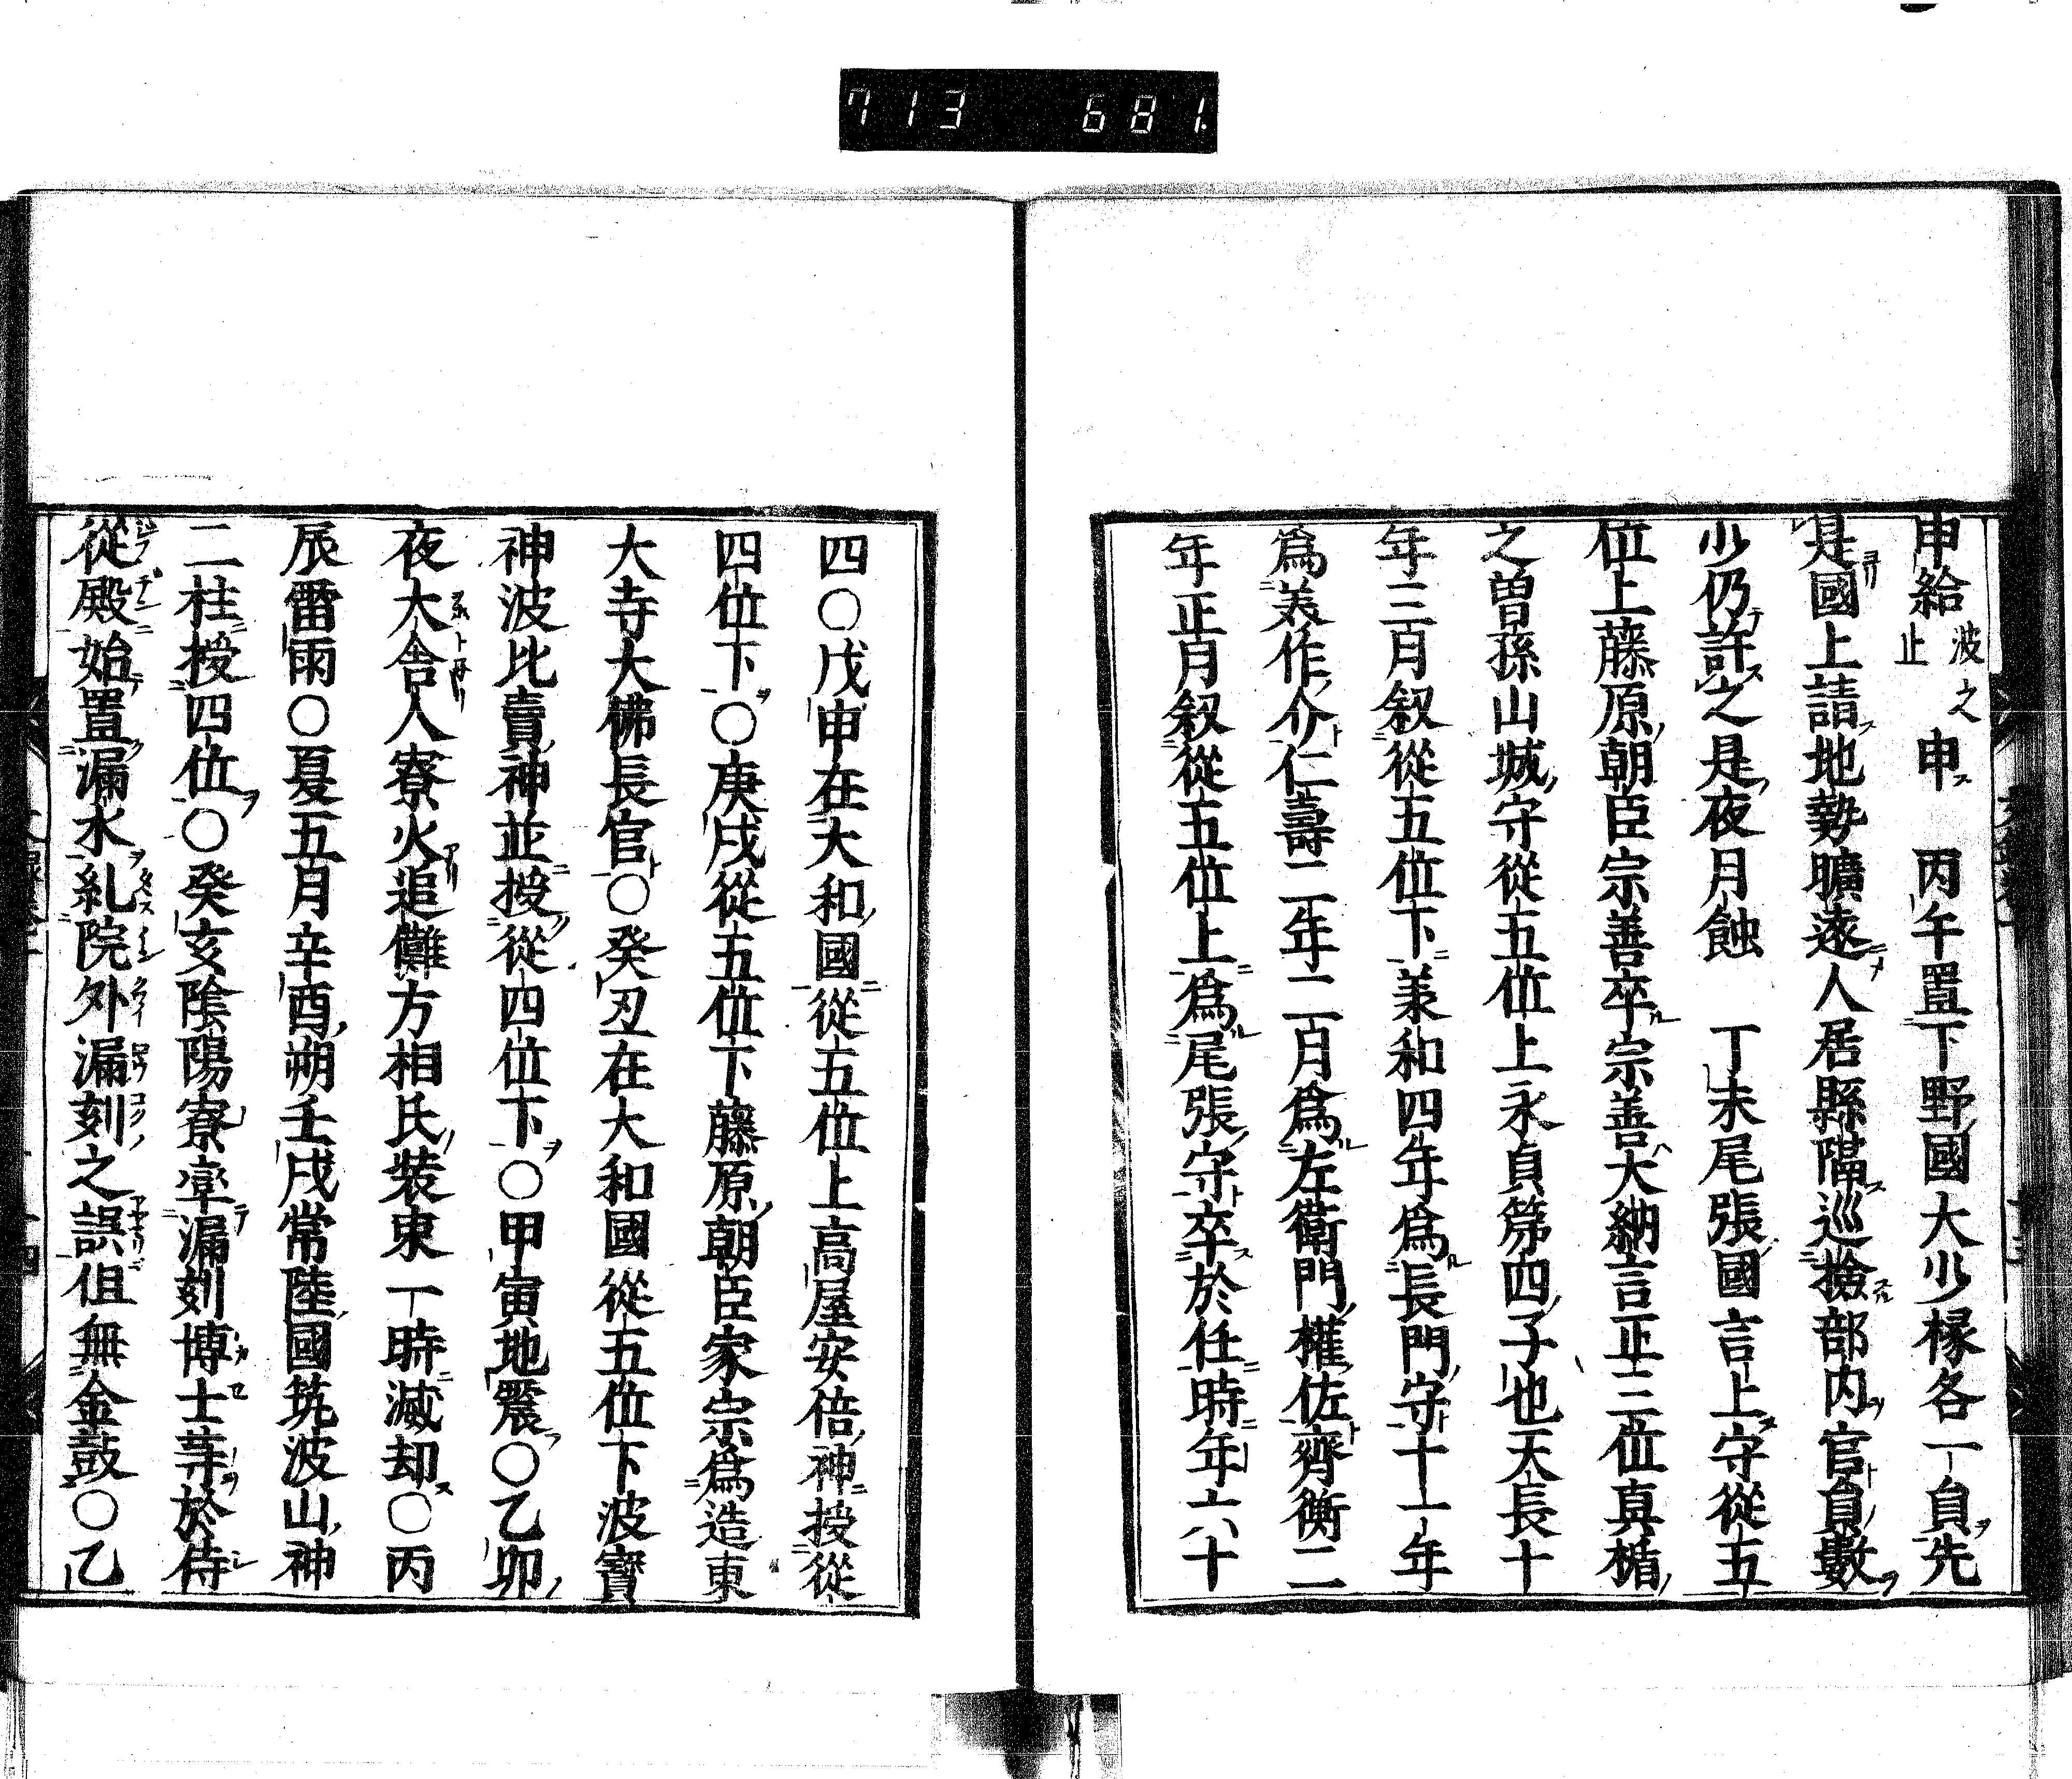 713 681.
申給波止之申 丙午置下野國大少椽各一員先
是國上請地勢曠遠人居縣隔巡撿部内官員數
少仍許之是夜月蝕 丁未尾張國言上守從五
位上藤原朝臣宗善卒宗善大納言正三位真楯
之曽孫山城守從五位上永貞第四子也天長十
年三月叙從五位下美和四年爲長門守十一年
爲美作介仁壽二年二月爲左衛門權佐齊衡二
年正月叙從五位上爲尾張守卒於任時年六十
四〇戊申在大和國從五位上高屋安倍神授從
四位下〇庚戌從五位下藤原朝臣家宗爲造東
大寺大佛長官〇癸丑在大和國從五位下波寳
神波比賣神並授從四位下〇甲寅地震〇乙卯
夜大舎人寮火追儺方相氏装束一時滅却〇丙
辰雷雨〇夏五月辛酉朔壬戌常陸國筑波山神
二柱授四位〇癸亥陰陽寮率漏刻博士等於侍
從殿始置漏水糺院外漏刻之誤但無金鼓〇乙